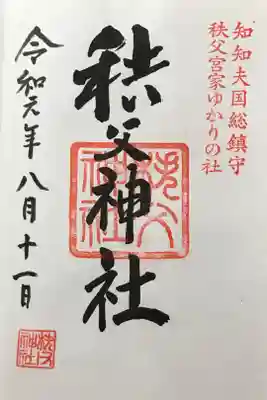 知知夫国総鎮守
秩父宮家ゆかりの社
秩父神社
秩父
神社
令和元年八月十一日
秩父
神社